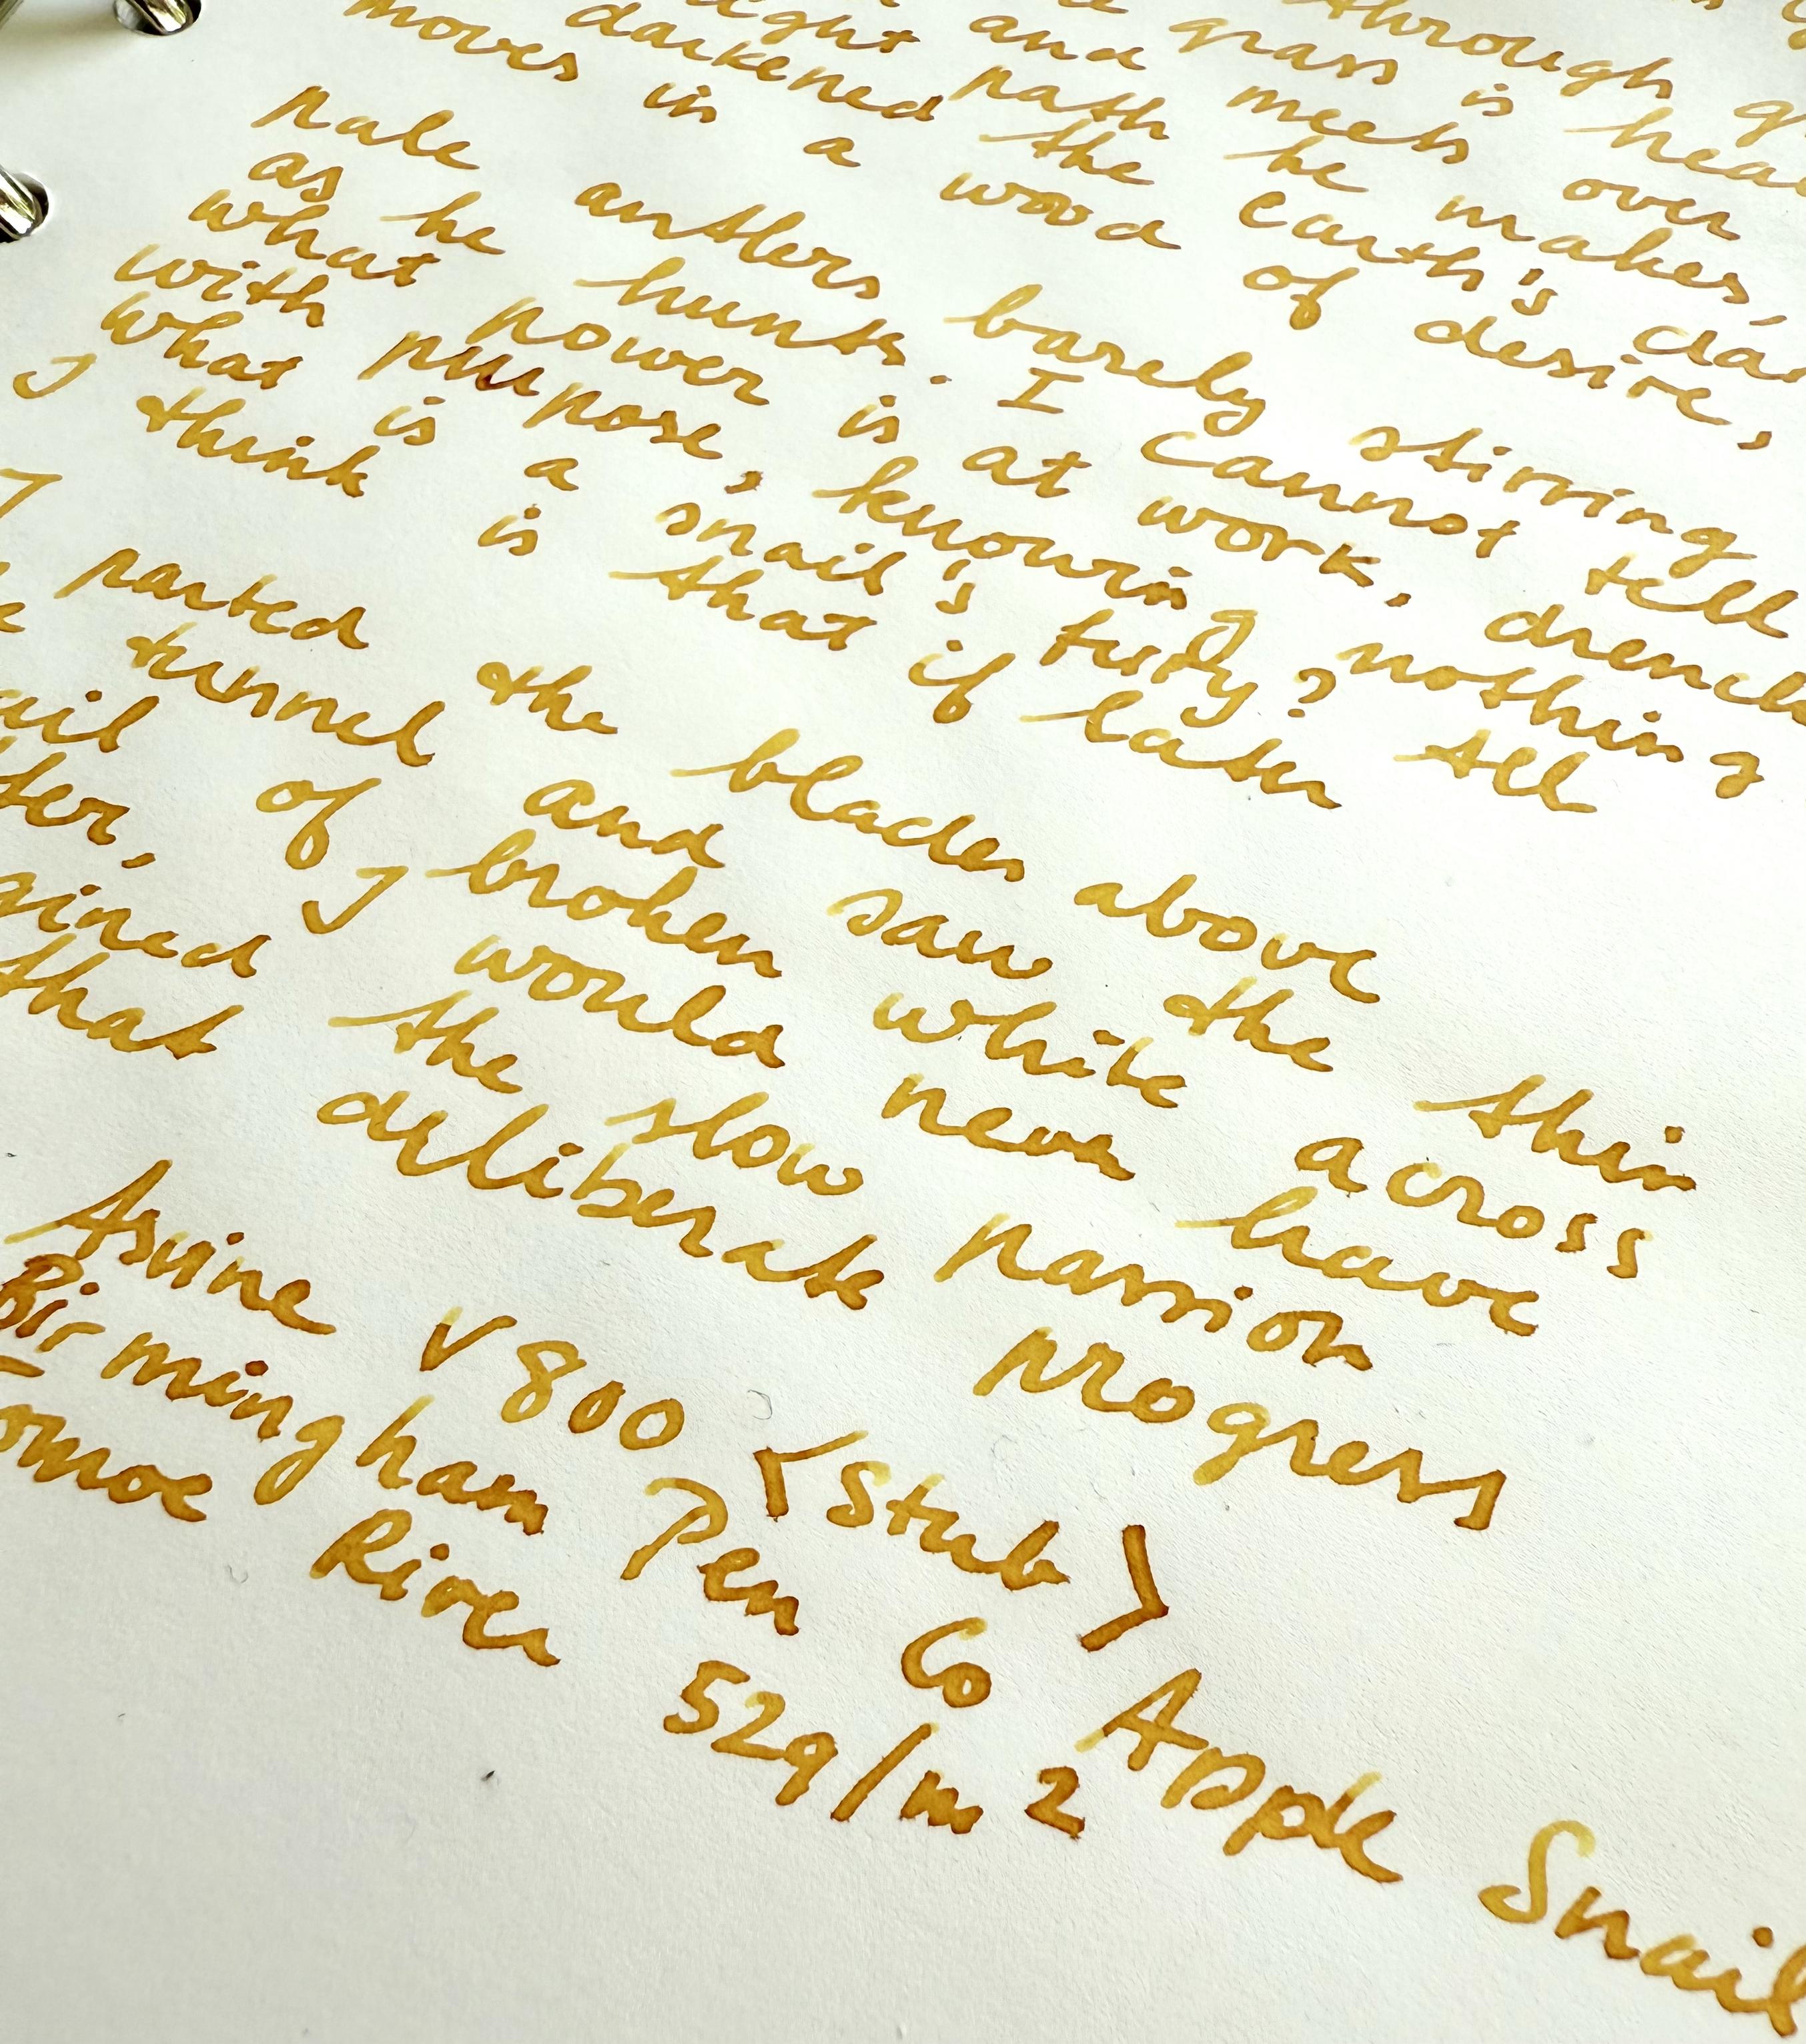 through g
grass is hea
and meets over
ight path he makes,
darkened the earth's da
moves in a wood of desire,
pale antlers barely stirring
as he hunts. I cannot tell
what power is at work, drench
with purpose, knowing nothing
What is a snail's fury? All
I think is that if later
I parted the blades above
e tunnel and saw the thin
ail of broken white across
tter, I would never have
gined the slow passion
that deliberate progress
Asvine V800 <Stub>
Birmingham Pen Co Apple Snail
omoe River 52g/m2